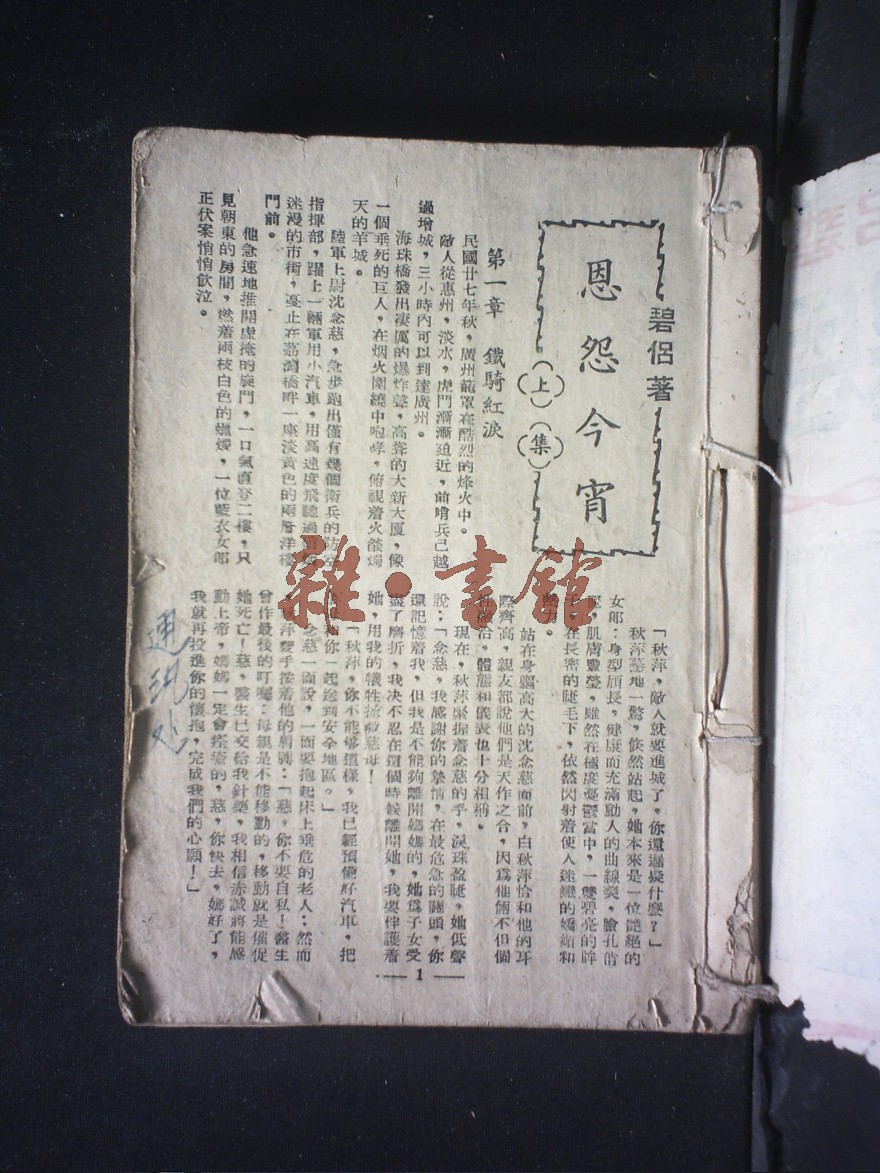 碧侶著
恩怨今宵
（上）（集）
第一章　鐵騎紅淚
民國廿七年秋，廣州籠罩在酷烈的烽火中。
敵人從惠州，淡水，虎門漸漸迫近，前哨兵已越
過增城，三小時內可以到達廣州。
海珠橋發出凄厲的爆炸聲，高聳的大新大厦，像
一個垂死的巨人，在烟火圍繞中咆哮，俯視着火燄燭
天的羊城。
陸軍上尉沈念慈，急步跑出僅有幾個衛兵的防空
指揮部，躍上一輛軍用小汽車，用高速度飛馳過
迷漫的市街，戛止在荔灣橋畔一座淡黃色的兩層洋樓
門前。
他急速地推開虛掩的旋門，一口氣直登二樓，只
見朝東的房間，燃着兩枝白色的蠟燭，一位藍衣女郎
正伏案悄悄飲泣。
「秋萍，敵人就要進城了，你還遲疑什麼？」
秋萍驀地一驚，倏然站起，她本來是一位艷絕的
女郎：身型頎長，健康而充滿動人的曲線美，臉孔俏
肌膚豐瑩，雖然在極度憂鬱當中，一雙碧亮的眸
在長密的睫毛下，依然閃射着使人迷戀的嬌媚和
站在身軀高大的沈念慈面前，白秋萍恰和他的耳
際齊高，親友都說他們是天作之合，因爲他倆不但個
體態和儀表也十分相稱。
現在，秋萍緊握着念慈的手，淚珠盈睫，她低聲
說：「念慈，我感謝你的摯情，在最危急的關頭，你
還記憶着我，但我是不能夠離開媽媽的，她爲子女受
盡了磨折，我决不忍在這個時候離開她，我要伴護着
她，用我的犧牲拯救慈母！」
「秋萍，你不能够這樣，我已經預備好汽車，把
和你一起送到安全地區。」
念慈一面說，一面要抱起床上垂危的老人；然而
萍雙手按着他的肩膊：「慈，你不要自私！醫生
曾作最後的叮囑：母親是不能移動的，移動就是催促
她死亡！慈，醫生已交給我針藥，我相信赤誠將能感
動上帝，媽媽一定會痊癒的，慈，你快去，媽好了，
我就再投進你的懷抱，完成我們的心願！」
— 1 —
雜·書館